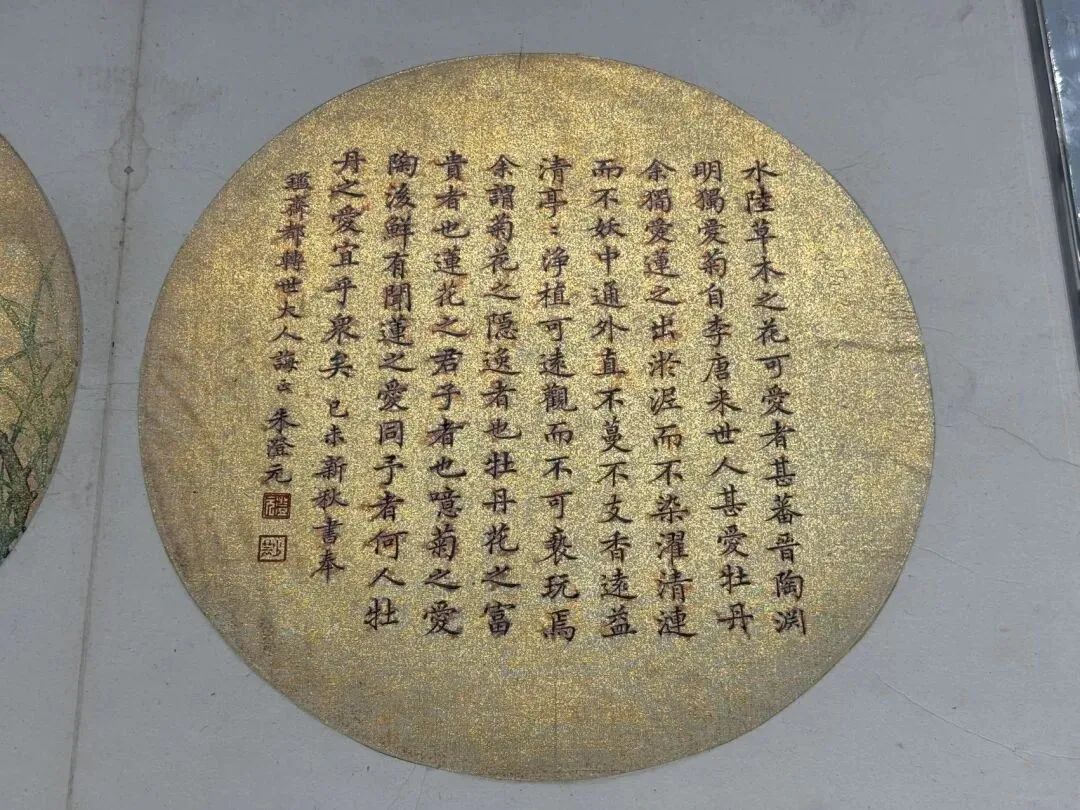 水陸草木之花可愛者甚蕃晉陶淵
明獨愛菊自李唐来世人甚愛牡丹
余獨愛蓮之出淤泥而不染濯清漣
而不妖中通外直不蔓不支香遠益
清亭〻淨植可遠觀而不可褻玩焉
余謂菊花之隱逸者也牡丹花之富
貴者也蓮花之君子者也噫菊之愛
陶後鮮有聞蓮之愛同予者何人牡
丹之愛宜乎衆矣 己未新秋書奉
斎都轉世大人誨正 朱元